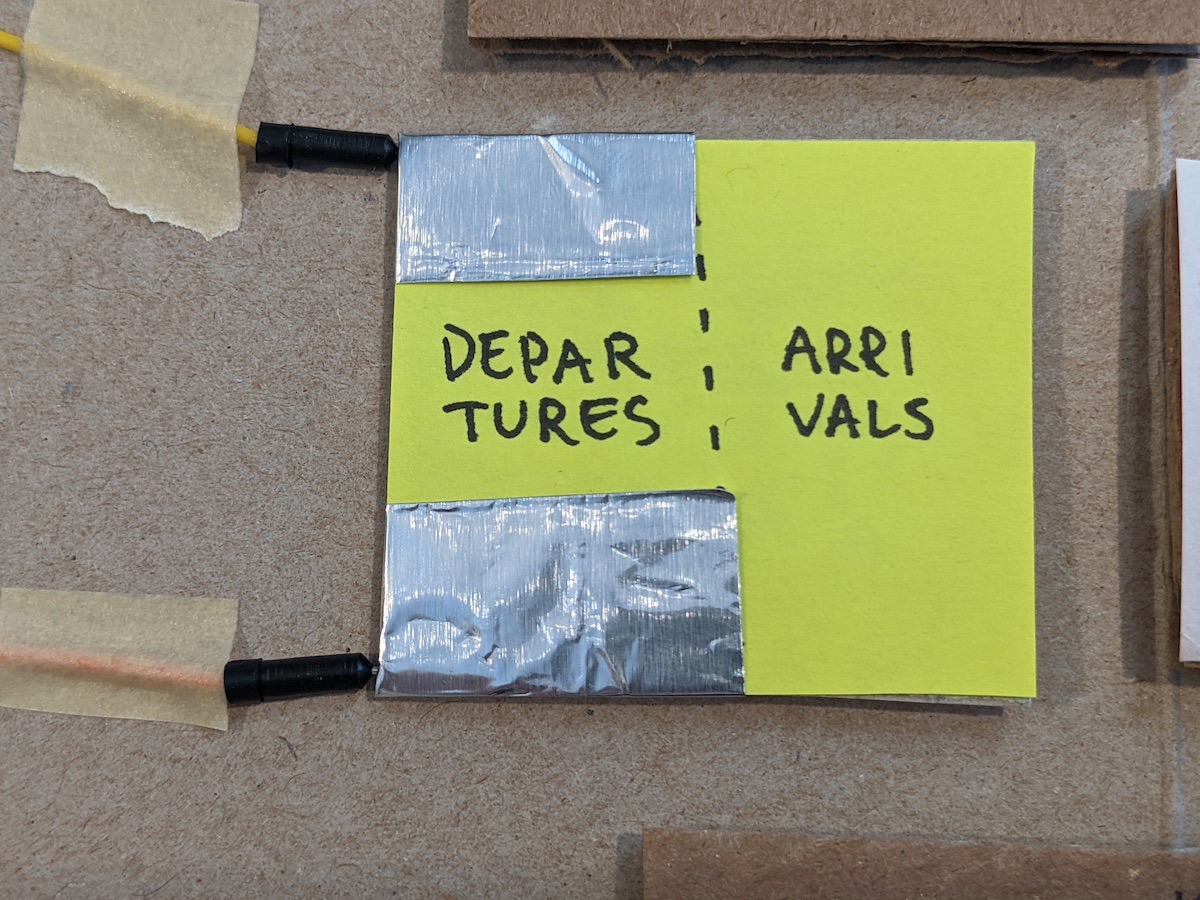 DEPAR
TURES
ARRI
VALS